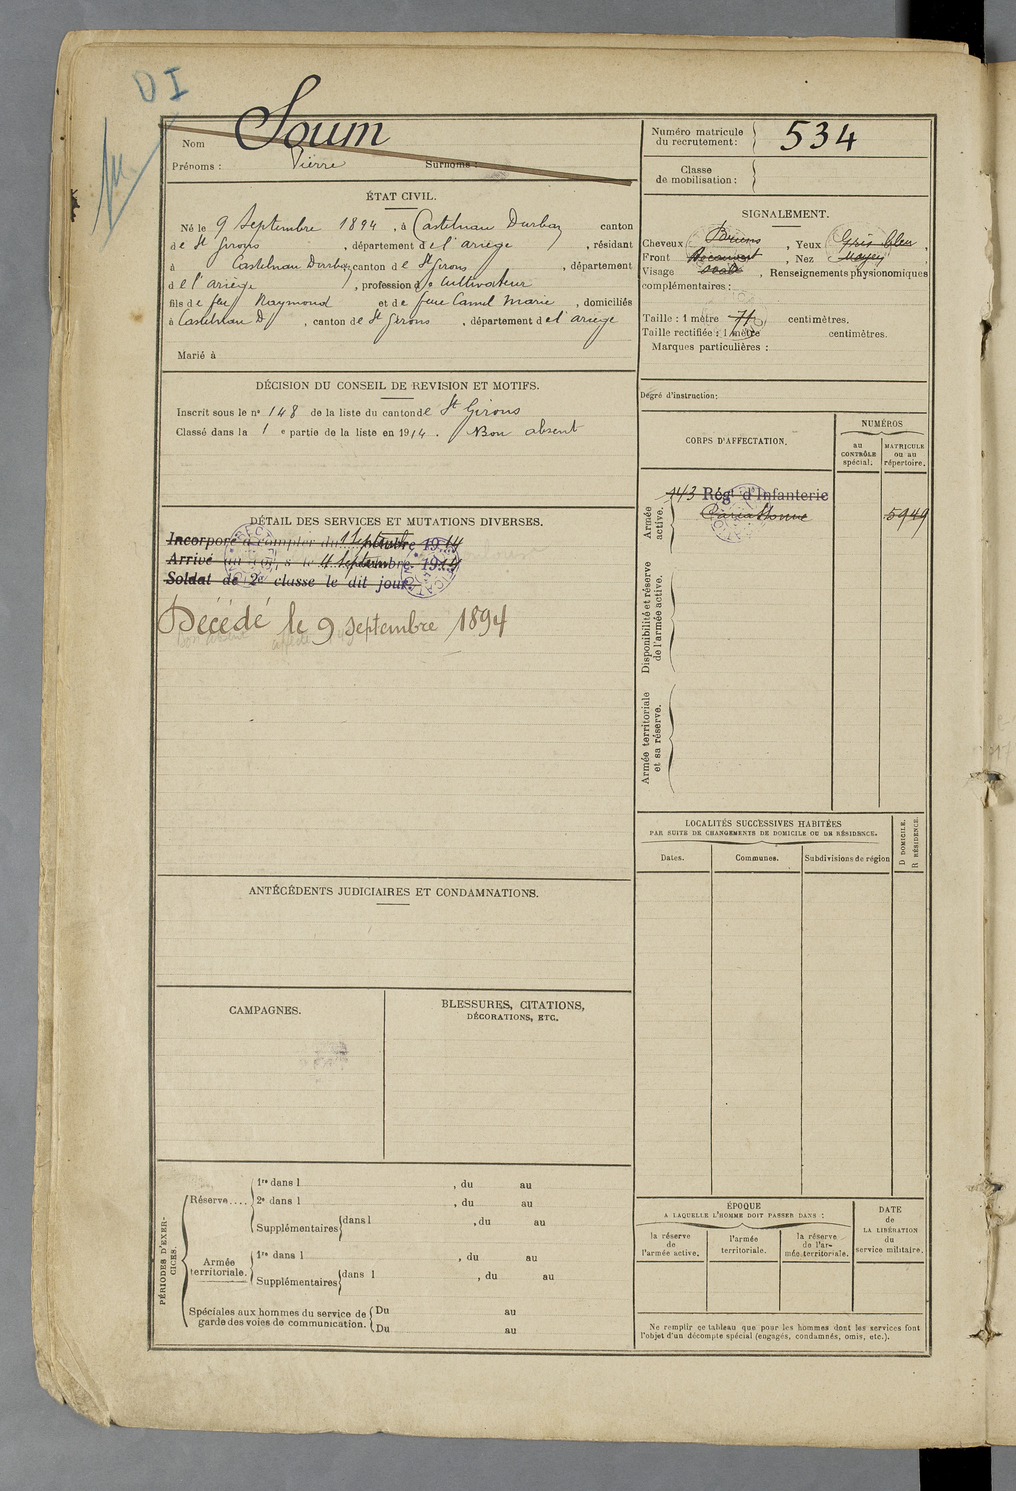 DI
Nom Soum
Prénoms : Pierre Surnoms :
Numéro matricule du recrutement : 534
Classe de mobilisation :
ÉTAT CIVIL.
Né le 9 Septembre 1894, à Castelnau Durban canton
de St Girons, département de l'ariège, résidant
à Castelnau Durban, canton de St Girons, département
de l'ariège, profession de Cultivateur
fils de feu Raymond et de feue Camel Marie, domiciliés
à Castelnau D, canton de St Girons, département de l'ariège
Marié à
SIGNALEMENT.
Cheveux Bruns, Yeux Gris bleu,
Front Découvert, Nez Moyen
Visage ovale, Renseignements physionomiques
complémentaires :
Taille : 1 mètre 71 centimètres.
Taille rectifiée : 1 mètre centimètres.
Marques particulières :
Degré d'instruction :
DÉCISION DU CONSEIL DE REVISION ET MOTIFS.
Inscrit sous le no 148 de la liste du canton de St Girons
Classé dans la 1e partie de la liste en 1914. Bon absent
CORPS D'AFFECTATION.
NUMÉROS
au CONTRÔLE spécial.
MATRICULE ou au répertoire.
Armée active.
143 Régt d'Infanterie
Carcassonne
5949
Disponibilité et réserve de l'armée active.
Armée territoriale et sa réserve.
DÉTAIL DES SERVICES ET MUTATIONS DIVERSES.
Incorporé à compter du 1 Septembre 1914
Arrivé au corps le 4 Septembre 1914
Soldat de 2e classe le dit jour
Décédé le 9 septembre 1894
LOCALITÉS SUCCESSIVES HABITÉES
PAR SUITE DE CHANGEMENTS DE DOMICILE OU DE RÉSIDENCE.
Dates.
Communes.
Subdivisions de région
D DOMICILE.
R RÉSIDENCE.
ANTÉCÉDENTS JUDICIAIRES ET CONDAMNATIONS.
CAMPAGNES.
BLESSURES, CITATIONS,
DÉCORATIONS, ETC.
PÉRIODES D'EXERCICES.
Réserve....
1re dans l , du au
2e dans l , du au
Supplémentaires dans l , du au
Armée territoriale.
1re dans l , du au
Supplémentaires dans l , du au
Spéciales aux hommes du service de garde des voies de communication.
Du au
Du au
ÉPOQUE
A LAQUELLE L'HOMME DOIT PASSER DANS :
la réserve de l'armée active.
l'armée territoriale.
la réserve de l'armée territoriale.
DATE de LA LIBÉRATION du service militaire.
Ne remplir ce tableau que pour les hommes dont les services font
l'objet d'un décompte spécial (engagés, condamnés, omis, etc.).